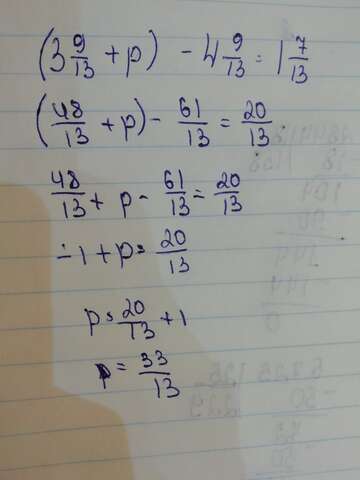 (3 9/13 + p) - 4 9/13 = 1 7/13
(48/13 + p) - 61/13 = 20/13
48/13 + p - 61/13 = 20/13
-1 + p = 20/13
p = 20/13 + 1
p = 33/13